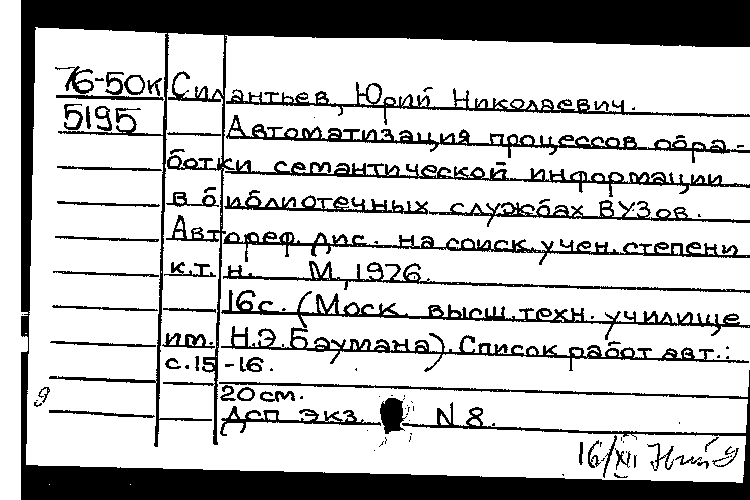 76-50к Силантьев, Юрий Николаевич.
5195 Автоматизация процессов обра-
ботки семантической информации
в библиотечных службах ВУЗов.
Автореф. дис. на соиск. учен. степени
к.т.н. М., 1976.
16с. (Моск. высш. техн. училище
им. Н.Э.Баумана). Список работ авт.:
с.15-16.
20 см.
Дсп экз. N 8.
16/XII